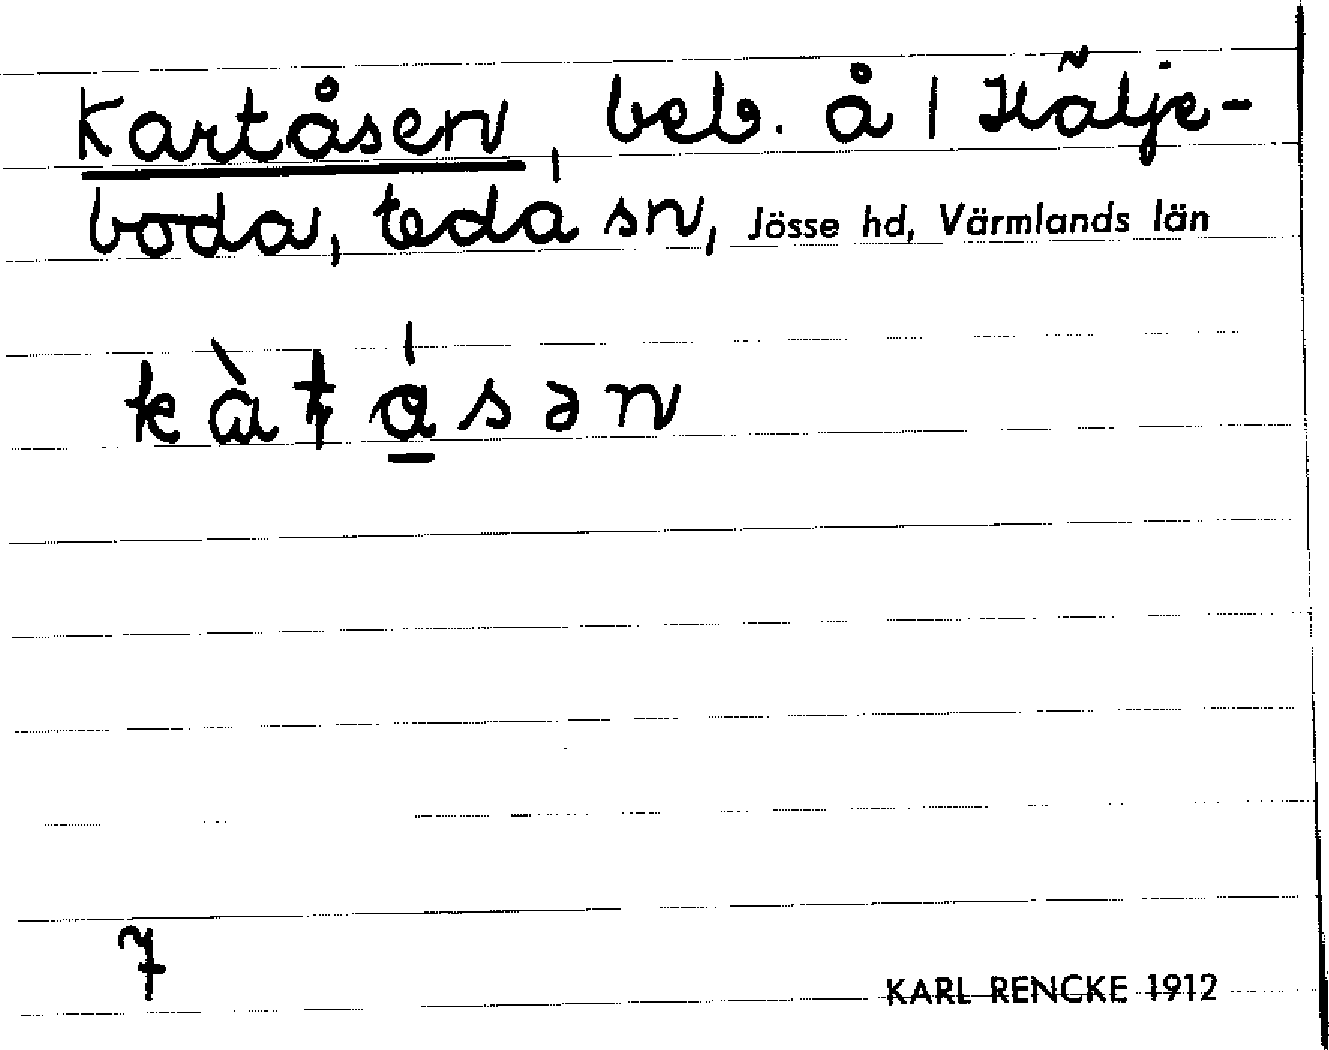 Kartåsen, beb. å 1 Hälje-
boda, Eda sn, Jösse hd, Värmlands län
7
KARL RENCKE 1912